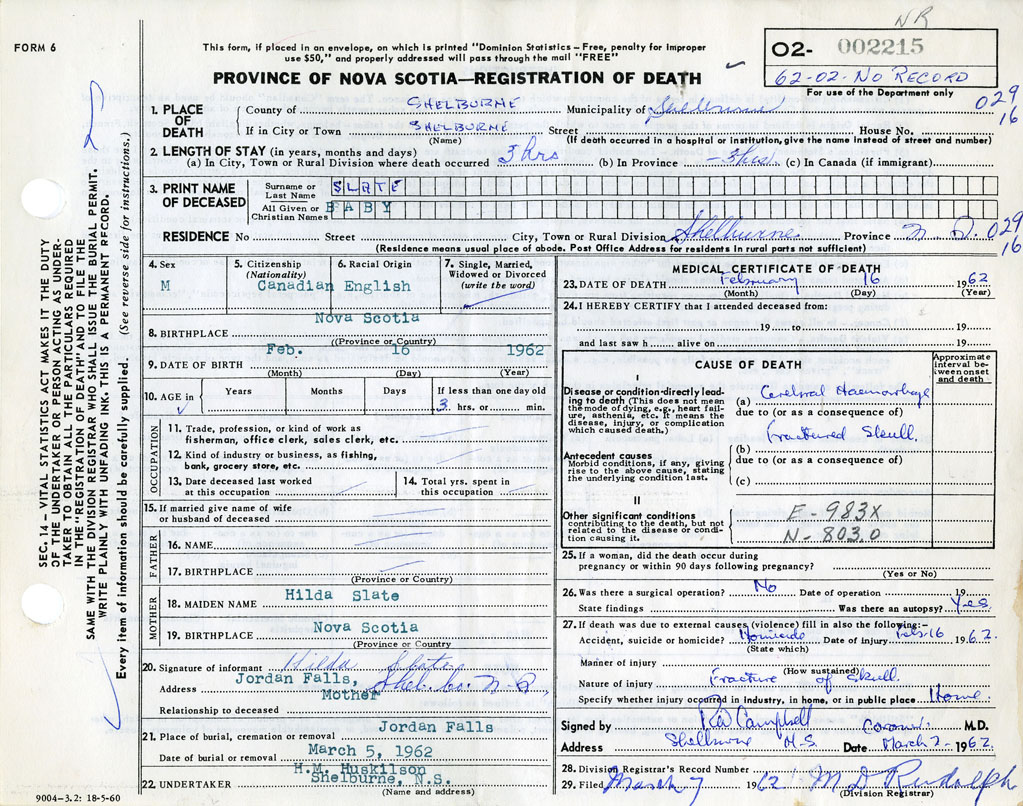 NR
FORM 6
This form, if placed in an envelope, on which is printed "Dominion Statistics—Free, penalty for improper
use $50," and properly addressed will pass through the mail "FREE"
O2- 002215
62-02-NO RECORD
For use of the Department only
PROVINCE OF NOVA SCOTIA—REGISTRATION OF DEATH
029
16
1. PLACE OF DEATH
County of SHELBURNE Municipality of Shelburne
If in City or Town SHELBURNE Street House No.
(Name) (If death occurred in a hospital or institution, give the name instead of street and number)
2. LENGTH OF STAY (in years, months and days)
(a) In City, Town or Rural Division where death occurred 3 hrs (b) In Province - 3 hrs (c) In Canada (if immigrant)
3. PRINT NAME OF DECEASED
Surname or Last Name SLATE
All Given or Christian Names BABY
RESIDENCE No Street City, Town or Rural Division Shelburne Province N. S. 029
16
(Residence means usual place of abode. Post Office Address for residents in rural parts not sufficient)
4. Sex 5. Citizenship (Nationality) 6. Racial Origin 7. Single, Married, Widowed or Divorced (write the word)
M Canadian English
8. BIRTHPLACE Nova Scotia
(Province or Country)
9. DATE OF BIRTH Feb. 16 1962
(Month) (Day) (Year)
10. AGE in Years Months Days If less than one day old
3 hrs. or min.
OCCUPATION
11. Trade, profession, or kind of work as
fisherman, office clerk, sales clerk, etc.
12. Kind of industry or business, as fishing,
bank, grocery store, etc.
13. Date deceased last worked at this occupation 14. Total yrs. spent in this occupation
15. If married give name of wife
or husband of deceased
FATHER
16. NAME
17. BIRTHPLACE
(Province or Country)
MOTHER
18. MAIDEN NAME Hilda Slate
19. BIRTHPLACE Nova Scotia
(Province or Country
20. Signature of informant Hilda Slate
Address Jordan Falls, Shel. Co. N.S.
Mother
Relationship to deceased
21. Place of burial, cremation or removal Jordan Falls
Date of burial or removal March 5, 1962
H.M. Huskilson
22. UNDERTAKER Shelburne, N.S.
(Name and address)
9004-3.2: 18-5-60
MEDICAL CERTIFICATE OF DEATH
23. DATE OF DEATH February 16 1962
(Month) (Day) (Year)
24. I HEREBY CERTIFY that I attended deceased from:
19 to 19
and last saw h alive on 19
CAUSE OF DEATH
Approximate interval between onset and death
I
Disease or condition directly leading to death (This does not mean the mode of dying, e.g., heart failure, asthenia, etc. It means the disease, injury, or complication which caused death.)
(a) Cerebral Haemorrhage
due to (or as a consequence of)
Fractured Skull.
Antecedent causes
Morbid conditions, if any, giving rise to the above cause, stating the underlying condition last.
(b)
due to (or as a consequence of)
(c)
II
Other significant conditions
contributing to the death, but not related to the disease or condition causing it.
E-983X
N-803.0
25. If a woman, did the death occur during
pregnancy or within 90 days following pregnancy?
(Yes or No)
26. Was there a surgical operation? No Date of operation 19
State findings Was there an autopsy? Yes
27. If death was due to external causes (violence) fill in also the following:—
Accident, suicide or homicide? Homicide Date of injury Feb 16 1962.
(State which)
Manner of injury
(How sustained)
Nature of injury Fracture of Skull.
Specify whether injury occurred in industry, in home, or in public place Home.
Signed by Campbell Coroner M.D.
Address Shelburne N.S. Date March 2 - 1962
28. Division Registrar's Record Number
29. Filed March 7 1962 M D Rudolph
(Division Registrar)
SEC. 14 – VITAL STATISTICS ACT MAKES IT THE DUTY
OF THE UNDERTAKER OR PERSON ACTING AS UNDER-
TAKER TO OBTAIN ALL THE PARTICULARS REQUIRED
IN THE "REGISTRATION OF DEATH" AND TO FILE THE
SAME WITH THE DIVISION REGISTRAR WHO SHALL ISSUE THE BURIAL PERMIT.
WRITE PLAINLY WITH UNFADING INK. THIS IS A PERMANENT RECORD.
Every item of information should be carefully supplied. (See reverse side for instructions.)